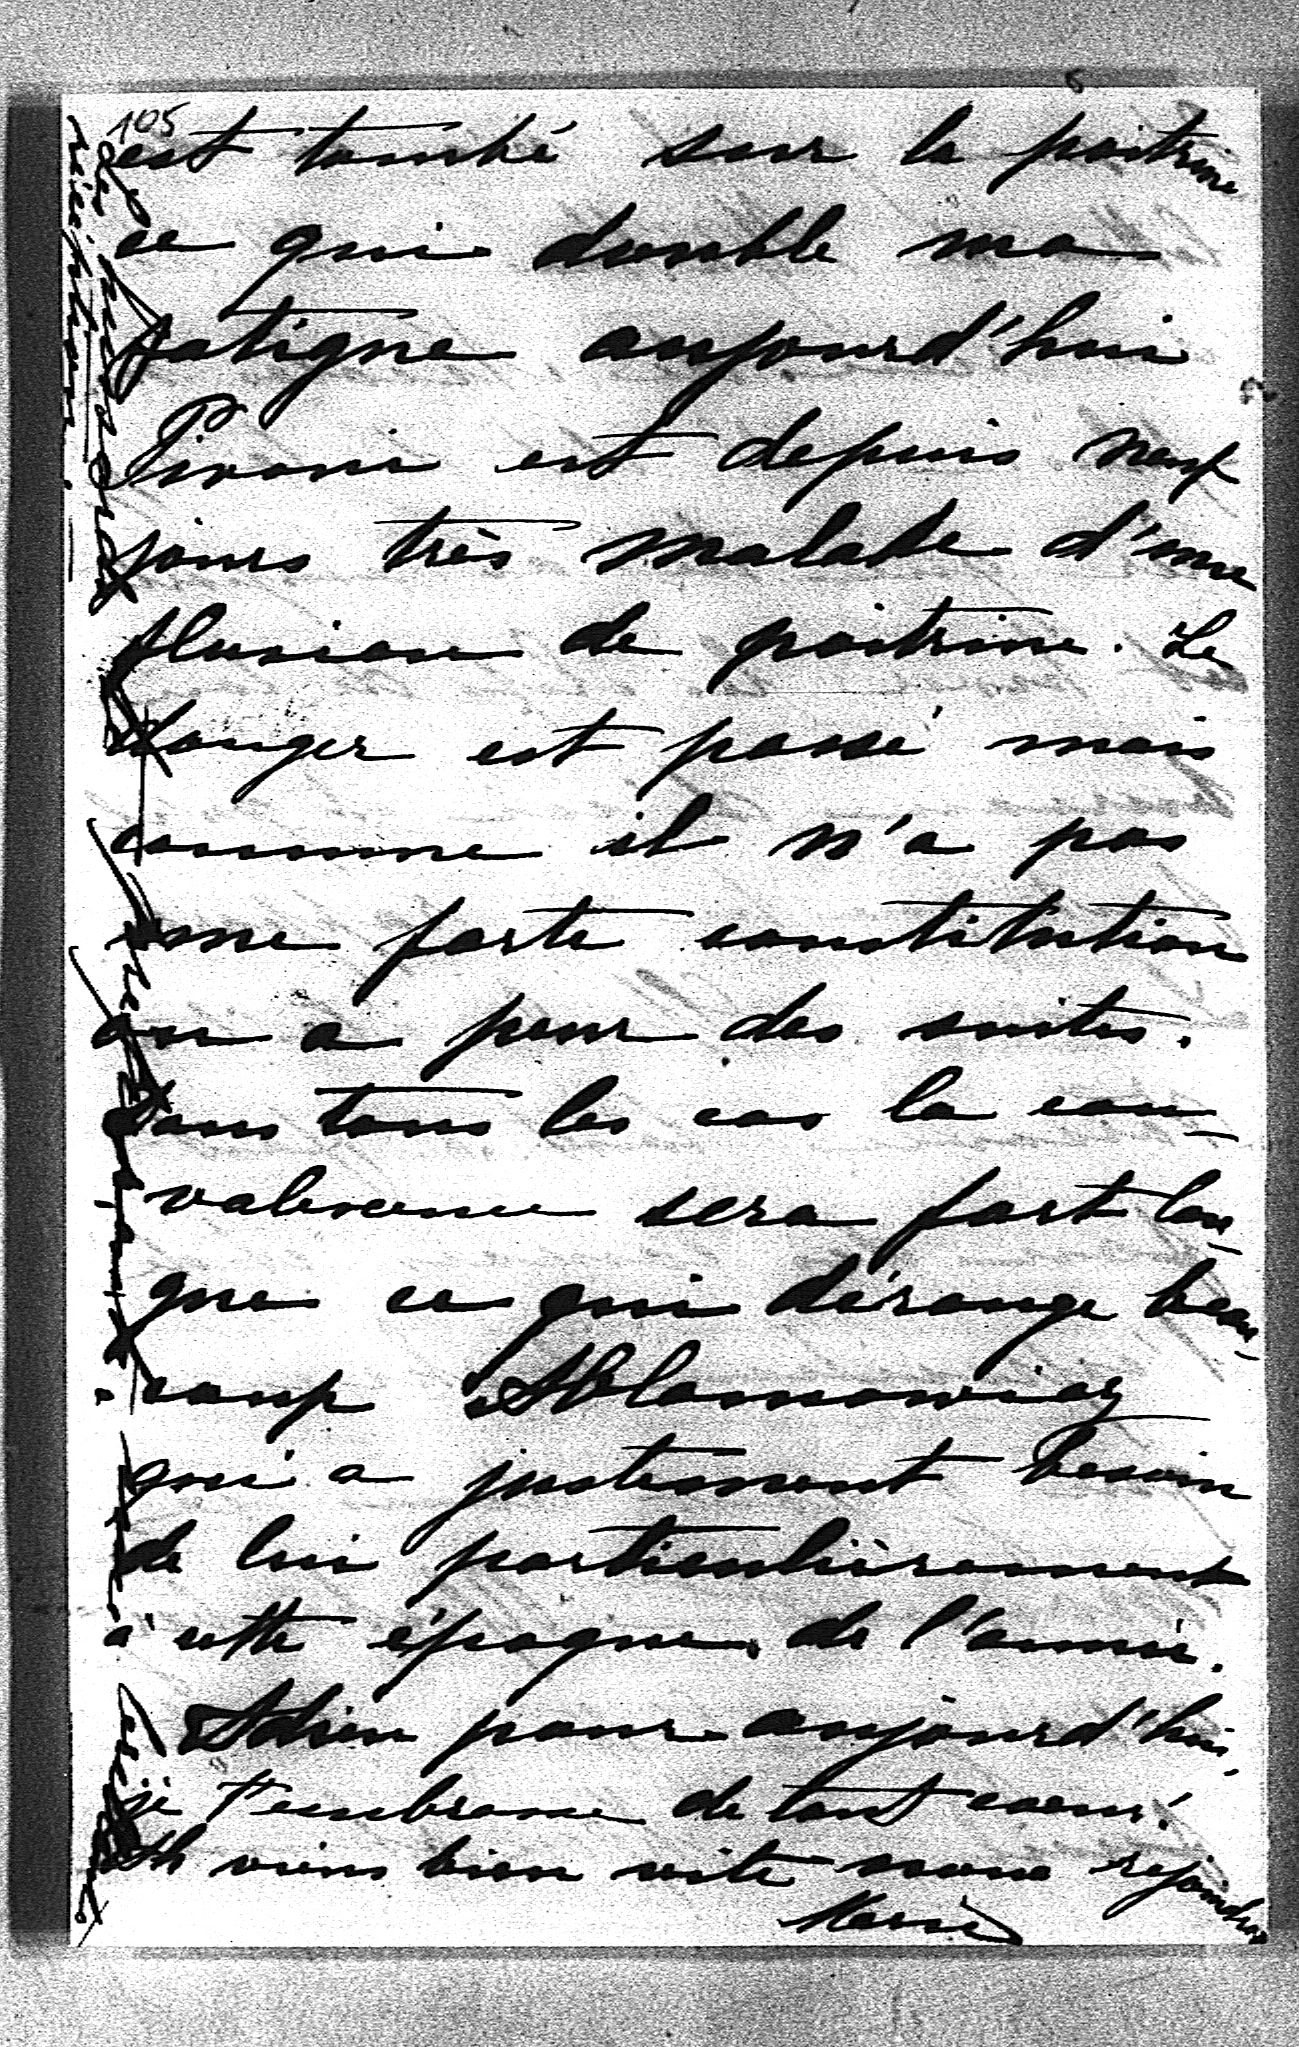 105
est tombé sur la poitrine
ce qui double ma
fatigue aujourd'hui
Pivoni est depuis neuf
jours très malade d'une
fluxion de poitrine. Le
danger est passé mais
comme il n'a pas
une forte constitution
on a peur des suites.
Dans tous les cas la con-
valescence sera fort lon-
gue ce qui dérange beau-
coup Ablamowicz
qui a justement besoin
de lui particulièrement
à cette époque de l'année.
Adieu pour aujourd'hui,
je t'embrasse de tout coeur!
Ah viens bien vite nous rejoindre
Marie